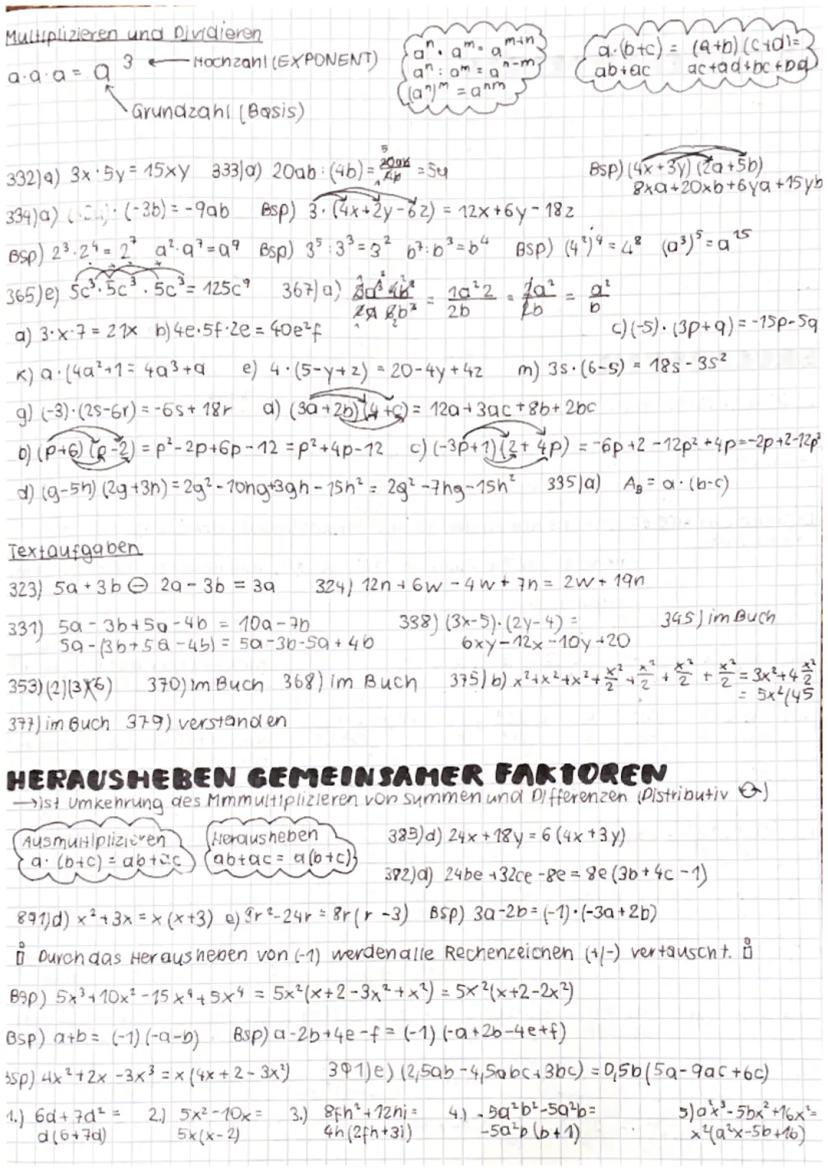 Multiplizieren und Dividieren
a·a·a = a³ ← Hochzahl (EXPONENT)
Grundzahl (Basis)
aⁿ · aᵐ = aᵐ⁺ⁿ
aⁿ : aᵐ = aⁿ⁻ᵐ
(aⁿ)ᵐ = aⁿᵐ
a·(b+c) = (a+b)(c+d)=
ab+ac ac+ad+bc+bd
332)a) 3x·5y = 15xy 333)a) 20ab : (4b) = 20ab/4b = 5a Bsp) (4x+3y)(2a+5b)
8xa+20xb+6ya+15yb
334)a) · (-3b) = -9ab Bsp) 3·(4x+2y-6z) = 12x+6y-18z
Bsp) 2³·2⁴ = 2⁷ a²·a⁷=a⁹ Bsp) 3⁵:3³=3² b⁷:b³=b⁴ Bsp) (4²)⁴ = 4⁸ (a³)⁵ = a¹⁵
365)e) 5c³·5c³·5c³ = 125c⁹ 367)a) = 1a²2/2b = 2a²/2b = a²/b
a) 3·x·7 = 21x b) 4e·5f·2e = 40e²f c) (-5)·(3p+q) = -15p-5q
k) a·(4a²+1 = 4a³+a e) 4·(5-y+z) = 20-4y+4z m) 3s·(6-s) = 18s-3s²
g) (-3)·(2s-6r) = -6s+18r a) (3a+2b)(4+c) = 12a+3ac+8b+2bc
b) (p+6)(p-2) = p²-2p+6p-12 = p²+4p-12 c) (-3p+1)(2+4p) = -6p+2-12p²+4p=-2p+2-12p²
d) (g-5h)(2g+3h) = 2g²-10hg+3gh-15h² = 2g²-7hg-15h² 335)a) A_B = a·(b-c)
Textaufgaben
323) 5a+3b ⊖ 2a-3b = 3a 324) 12n+6w-4w+7n = 2w+19n
331) 5a-3b+5a-4b = 10a-7b 338) (3x-5)·(2y-4) = 345) im Buch
5a-(3b+5a-4b) = 5a-3b-5a+4b 6xy-12x-10y+20
353)(2)(3)(6) 370) im Buch 368) im Buch 375)b) x²+x²+x²+x²/2+x²/2+x²/2+x²/2 = 3x²+4x²/2
= 5x²(45
377) im Buch 379) verstanden
HERAUSHEBEN GEMEINSAMER FAKTOREN
→ ist Umkehrung des Mmmultiplizieren von Summen und Differenzen (Distributiv
Ausmultiplizieren
a·(b+c) = ab+ac
Herausheben
ab+ac = a(b+c)
389)d) 24x+18y = 6(4x+3y)
392)a) 24be+32ce-8e = 8e(3b+4c-1)
891)d) x²+3x = x(x+3) e) 9r²-24r = 8r(r-3) Bsp) 3a-2b=(-1)·(-3a+2b)
Durch das Herausheben von (-1) werden alle Rechenzeichen (+/-) vertauscht.
Bsp) 5x³+10x²-15x⁴+5x⁴ = 5x²(x+2-3x²+x²) = 5x²(x+2-2x²)
Bsp) a+b = (-1)(-a-b) Bsp) a-2b+4e-f = (-1)(-a+2b-4e+f)
Bsp) 4x²+2x-3x³ = x(4x+2-3x²) 391)e) (2,5ab-4,5abc+3bc) = 0,5b(5a-9ac+6c)
1.) 6d+7d² = 2.) 5x²-10x = 3.) 8fh²+12hi = 4.) -5a²b²-5a²b= 5) a²x³-5bx²+16x²=
d(6+7d) 5x(x-2) 4h(2fh+3i) -5a²b(b+1) x²(a²x-5b+16)